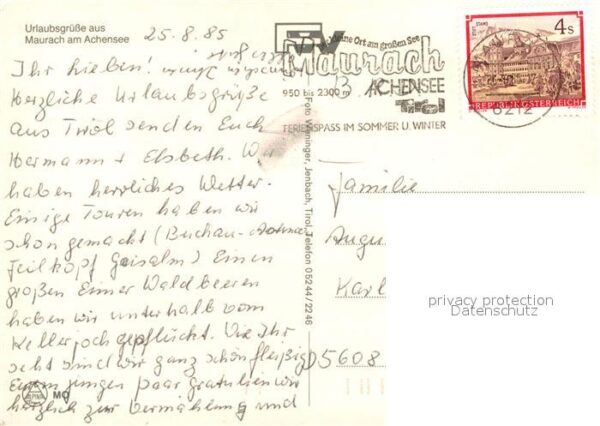 Urlaubsgrüße aus
Maurach am Achensee
25.8.85
Ihr Lieben!
Herzliche Urlaubsgrüße
aus Tirol senden Euch
Hermann + Elsbeth. Wir
haben herrliches Wetter.
Einige Touren haben wir
schon gemacht (Buchau-
Feilkopf Gaisalm) Einen
großen Eimer Waldbeeren
haben wir unterhalb vom
Kellerjoch gepflückt. Wie Ihr
seht sind wir ganz schön fleißig
Eurem jungen Paar gratulieren wir
herzlich zur Vermählung und
MO
Foto Weninger, Jenbach, Tirol, Telefon 05244/2246
Ort am großen See
Maurach
ACHENSEE
950 bis 2300 m
Tirol
FERIENSPASS IM SOMMER U. WINTER
STIFT STAMS
4 S
REPUBLIK ÖSTERREICH
6212
Familie
Augu
Karl
D5608
privacy protection
Datenschutz